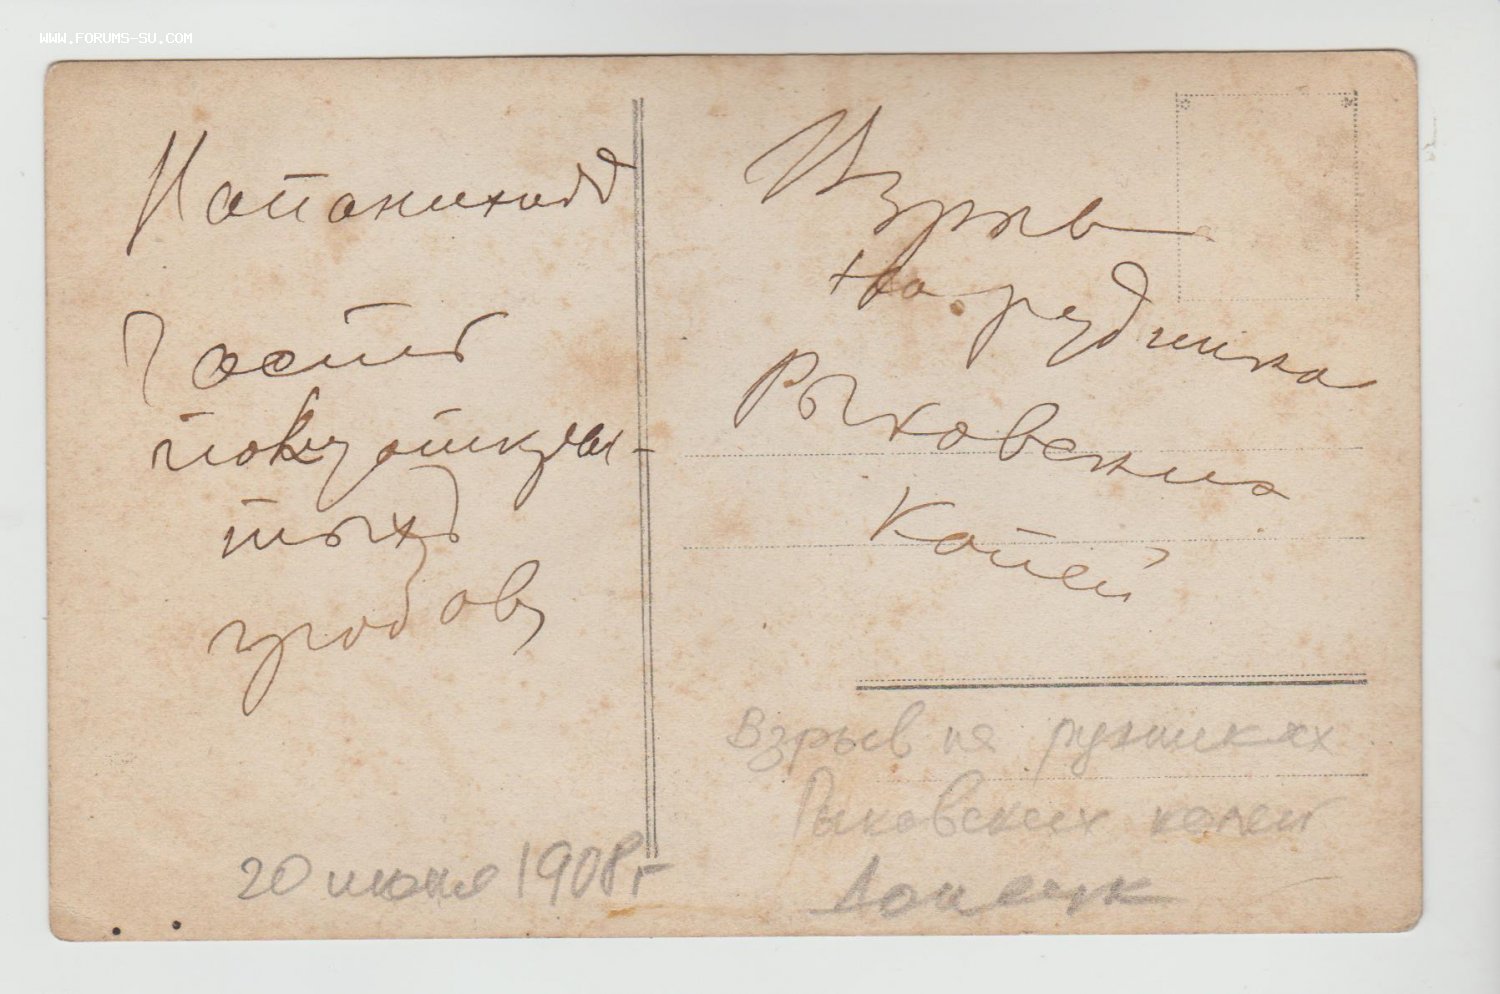 WWW.FORUMS-SU.COM
На панихидѣ
Часть
тыхъ
гробовъ
Взрывъ
на рудника
Рыковских
Копей
Взрыв на рудниках
Рыковских копей
Донецк
20 июня 1908г